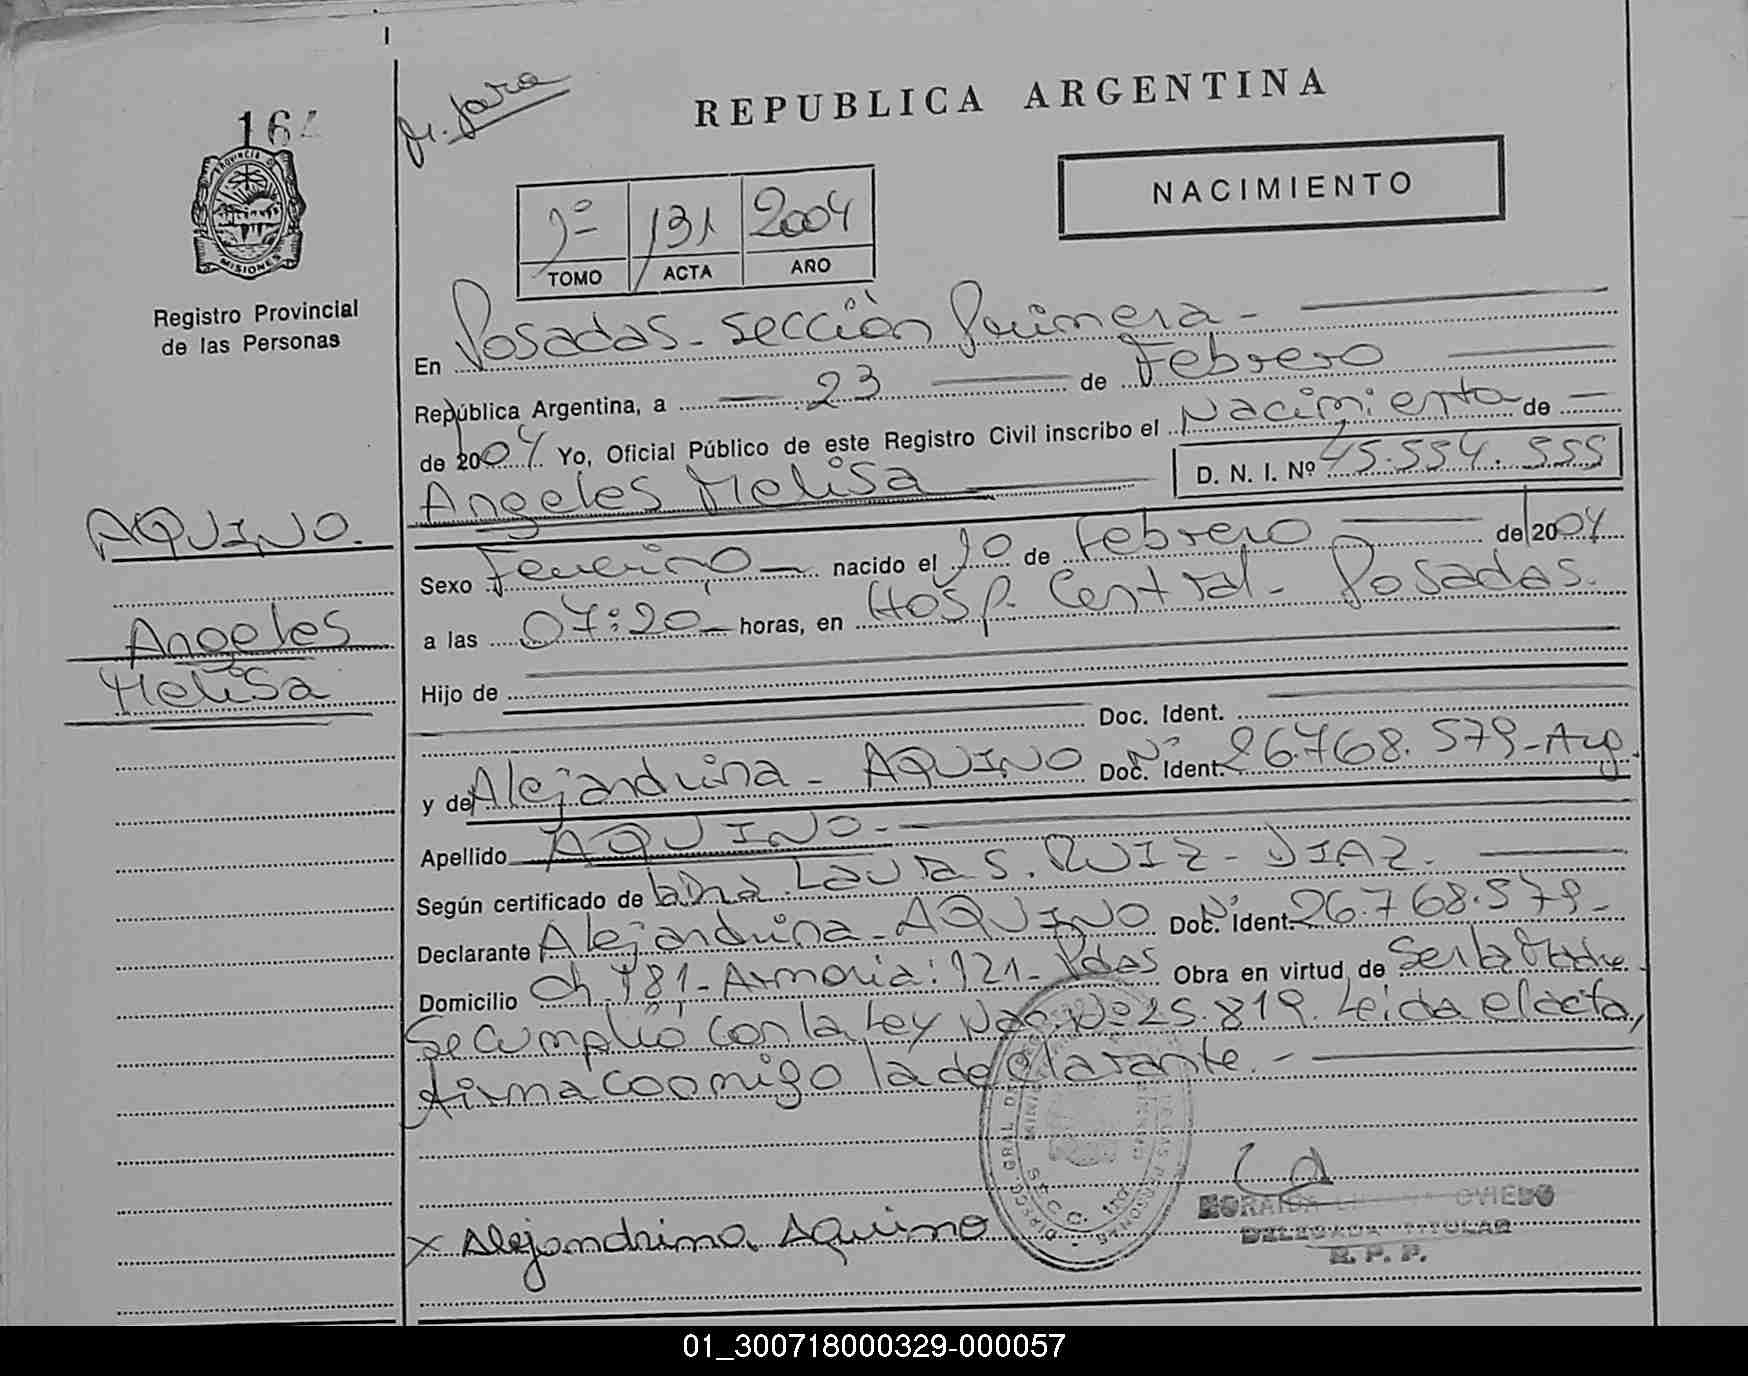 REPUBLICA ARGENTINA
NACIMIENTO
PROVINCIA DE
MISIONES
Registro Provincial
de las Personas
1º 131 2004
TOMO ACTA AÑO
En Posadas - Sección Primera -
República Argentina, a 23 de Febrero
de 2004 Yo, Oficial Público de este Registro Civil inscribo el Nacimiento de
Angeles Melisa D. N. I. Nº 45.554.555
AQUINO.
Angeles
Melisa
Sexo Femenino nacido el 10 de Febrero de 2004
a las 07:20 horas, en Hosp. Central - Posadas.
Hijo de
Doc. Ident.
y de Alejandrina - AQUINO Doc. Ident. Nº 26.768.579 - Arg.
Apellido AQUINO -
Según certificado de la Dra. Laura S. RUIZ - DIAZ.
Declarante Alejandrina - AQUINO Doc. Ident. Nº 26.768.579 -
Domicilio Ch. 181 - Armonia: 121 - Pdas Obra en virtud de Ser la Madre
Se cumplió con la Ley Nac. Nº 25.819. Leida el acta,
firma coomigo la declarante. -
x Alejandrina Aquino
OVIEDO
DELEGADA TITULAR
R. P. P.
01_300718000329-000057